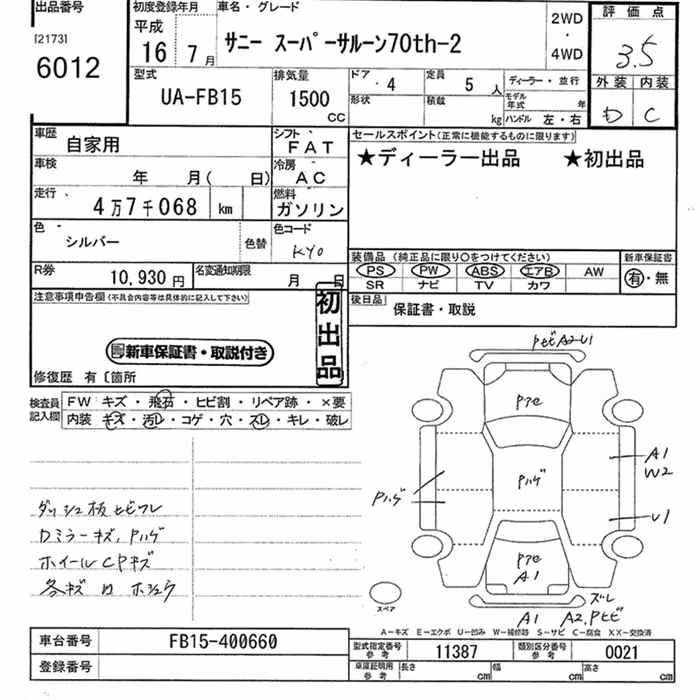 出品番号
[2173]
6012
初度登録年月
平成
16年 7月
車名・グレード
サニー スーパーサルーン70th-2
2WD
・
4WD
評価点
3.5
外装 内装
D C
型式
UA-FB15
排気量
1500
CC
ドア 4
定員 5人
ディーラー・並行
形状
積載 kg
モデル年式 年
ハンドル 左・右
車歴
自家用
シフト
FAT
車検
年 月( 日)
冷房
AC
走行
4万7千068 km
燃料
ガソリン
色
シルバー
色替
色コード
KY0
R券
10,930円
名変通知期限
月 日
セールスポイント(正常に機能するものに限ります)
★ディーラー出品 ★初出品
装備品 (純正品に限り○をつけてください)
PS PW ABS エアB AW
SR ナビ TV カワ
新車保証書
有・無
後日品
保証書・取説
注意事項申告欄(不具合内容等は具体的に記入して下さい)
初出品
新車保証書・取説付き
修復歴 有〔箇所
検査員記入欄
FW キズ・飛石・ヒビ割・リペア跡・×要
内装 キズ・汚レ・コゲ・穴・スレ・キレ・破レ
ダッシュ板ヒビワレ
Dミラーキズ,Pハゲ
ホイールCPキズ
各キズ凹ホシュウ
PヒビA2U1
Pアセ
A1
W2
Pハゲ
Pハゲ
U1
Pアセ
A1
ズレ
A1 A2,Pヒビ
スペア
A−キズ E−エクボ U−凹み W−補修跡 S−サビ C−腐食 XX−交換済
車台番号
FB15-400660
登録番号
型式指定番号
参考
11387
類別区分番号
参考
0021
車庫証明用
参考
長さ cm
幅 cm
高さ cm